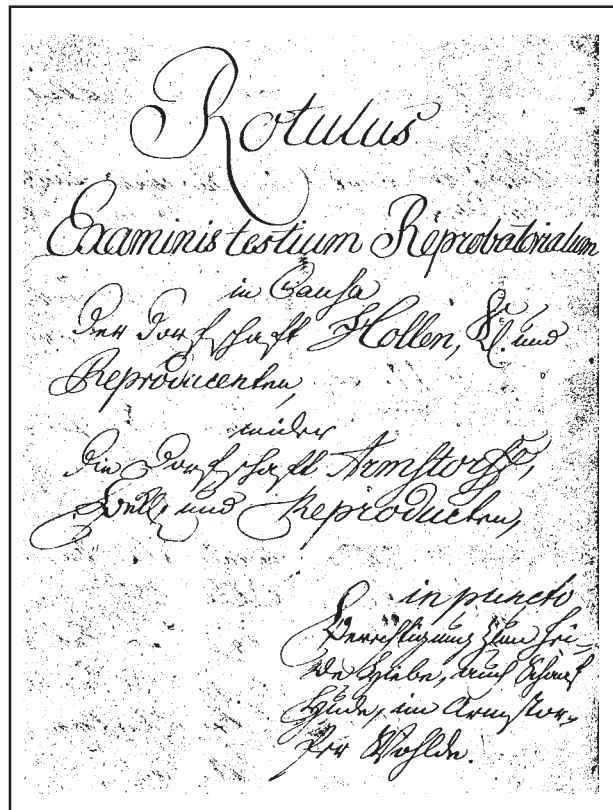 Rotulus
Examinis testium Reprobatorialium
in Causa
der Dorfschaft Hollen, Kl. und
Reproducenten,
wider
die Dorfschaft Armstorff,
Bekl. und Reproducten,
in puncto
Berechtigung zum Hei-
de Hiebe, auch Schaaf
Hude, im Armstor-
fer Wohlde.